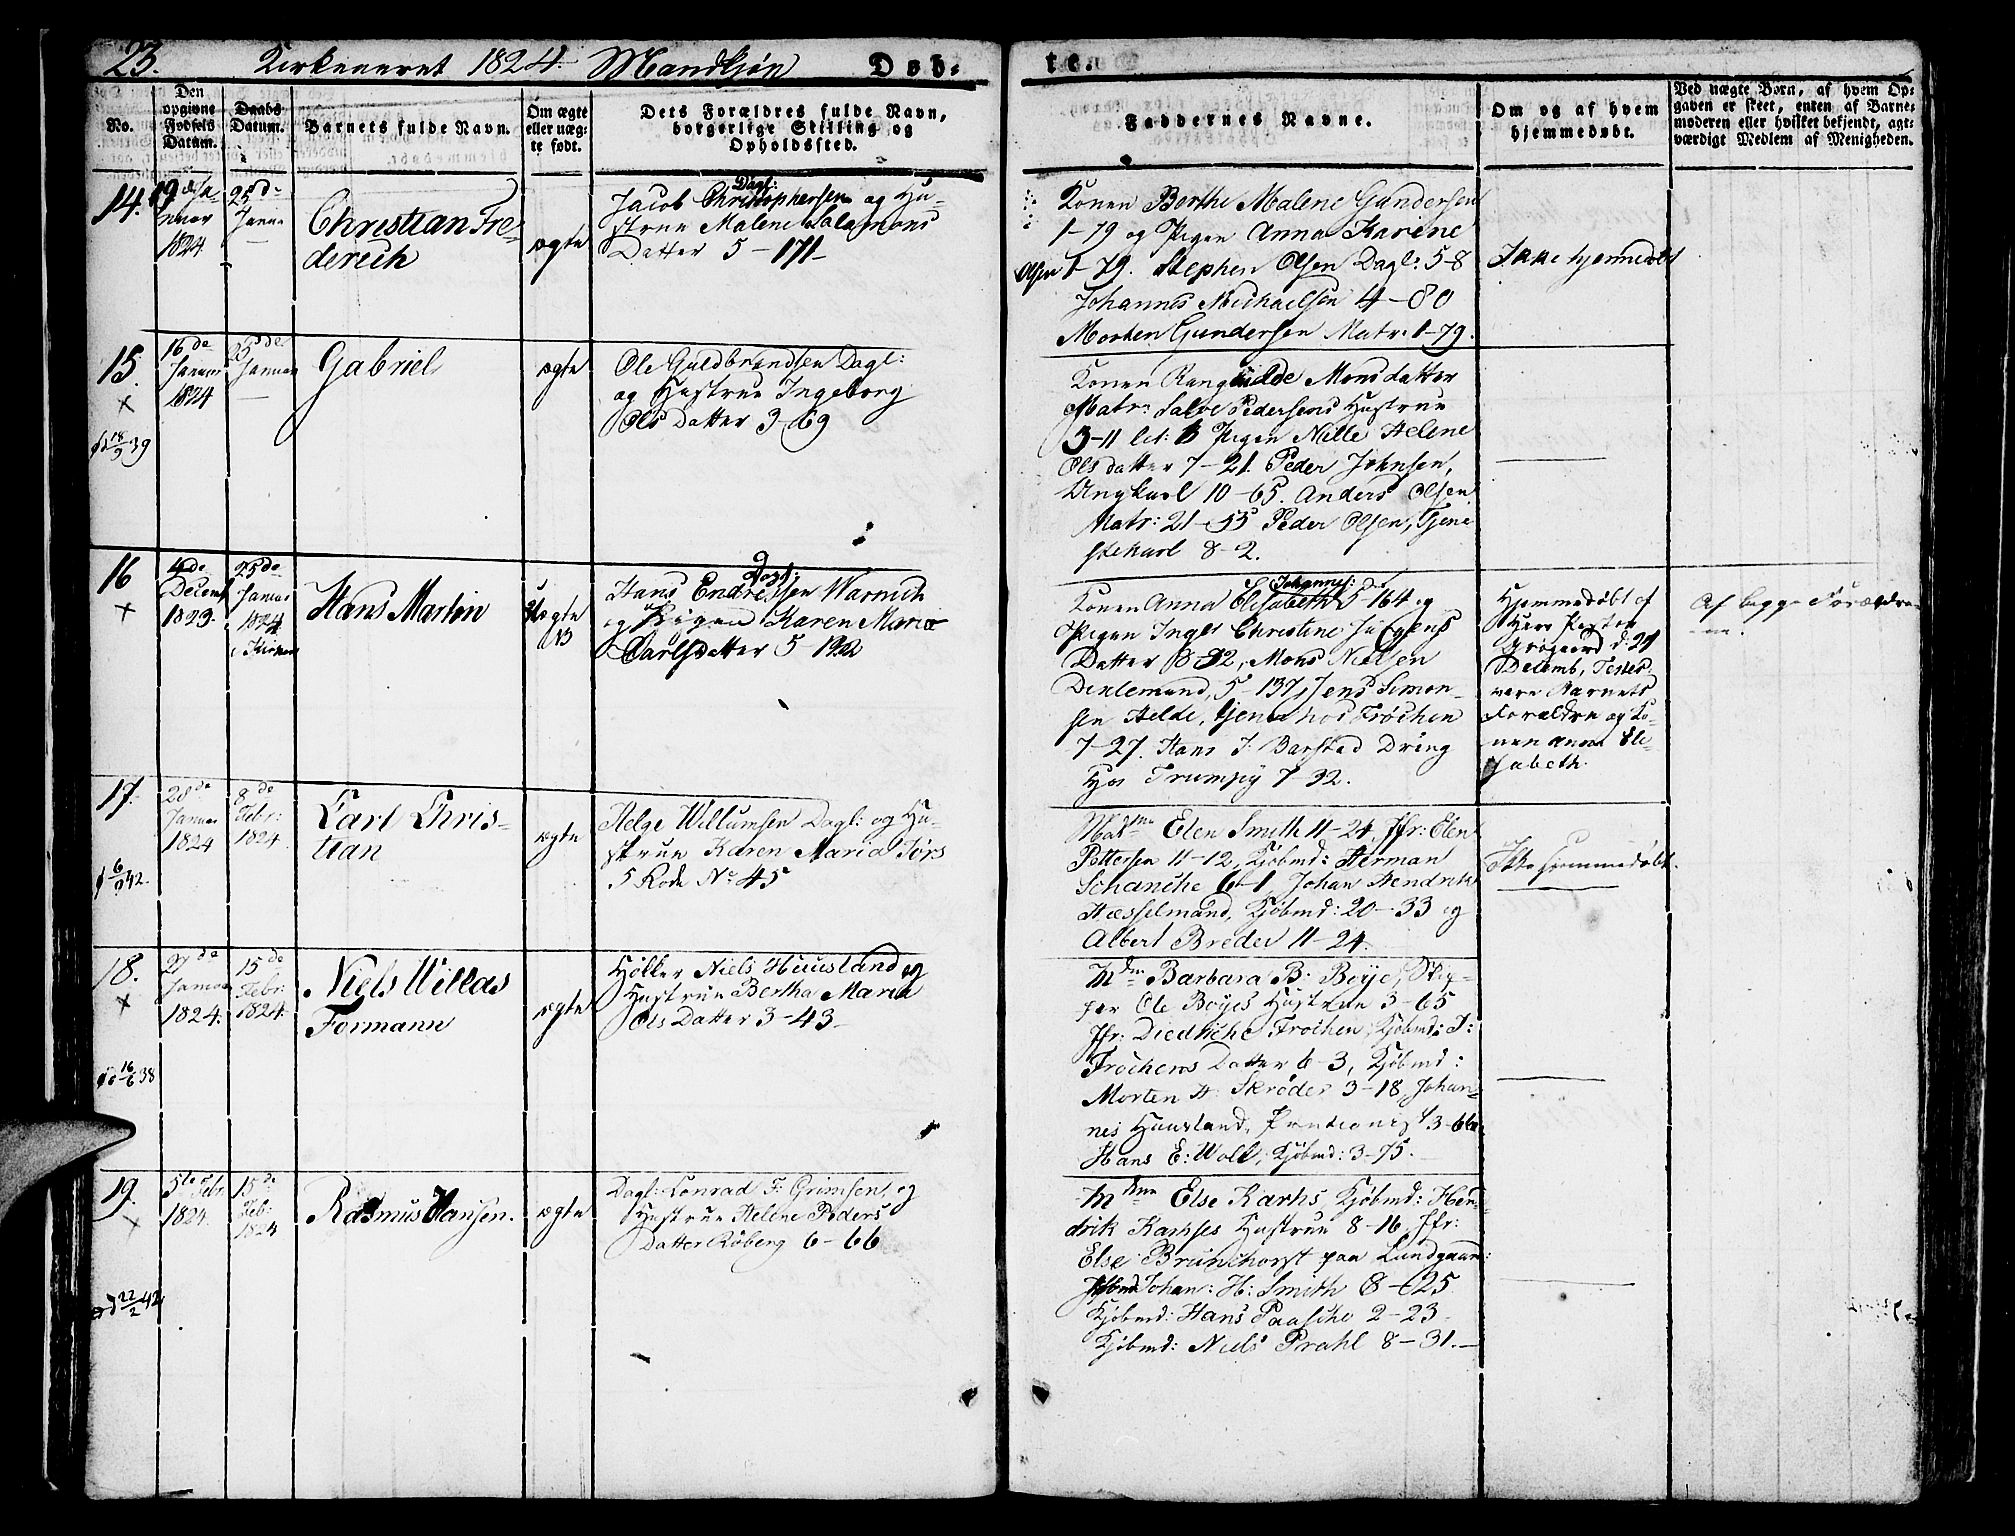 23. Kirkeaaret 1824. Mandkjøn Døb-
te.
No.
Den opgivne Fødsels Datum.
Daabs Datum.
Barnets fulde Navn.
Om ægte eller uæg-
te født.
Dets Forældres fulde Navn,
borgerlige Stilling og
Opholdssted.
Faddernes Navne.
Om og af hvem
hjemmedøbt.
Ved uægte Børn, af hvem Op-
gaven er skeet, enten af Barne-
moderen eller hvilket bekjendt, agt-
værdigt Medlem af Menigheden.
14.
19de Ja-
nuar
1824
25de
Janua
Christian Fre-
derich
ægte
Dagl:
Jacob Christophersen og Hu-
strue Malene Salamons
Datter 5-171-
Konen Berthe Malene Gundersen
1-79 og Pigen Anna Karine
Olsen 1-79. Stephen Olsen Dagl: 5-8
Johannes Michaelsen 4-80
Morten Gundersen Matr: 1-79.
Ikke hjemmedøbt
15.
×
16de
Januar
1824
25de
Januar
Gabriel
ægte
Ole Guldbrandsen Dagl:
og Hustrue Ingeborg
Ols Datter 3-69
18/9 39
Konen Rangnilde Monsdatter
Matr: Salve Pedersens Hustrue
3-11 lit: b Pigen Nille Helene
Olsdatter 7-21. Peder Johnsen,
Ungkarl 10-65. Anders Olsen
Matr: 21-55 Peder Olsen, Tjene
stekarl 8-2.
16
×
4de
Decemb
1823.
25de
Januar
1824
i Kirken
Hans Martin
Uægte
13
Hans Endressen Warnich
og Pigen Karen Maria
Carlsdatter 5-192
Johannes:
Konen Anna Elisabeth 5-164 og
Pigen Inger Christine Jurgens
Datter 8-32, Mons Nielsen
Denlemand, 5-137, Jens Simon-
sen Helde, tjener hos Frøchen
7-27. Hans J: Barstad Dreng
Hos Trumpy 7-32.
Hjemmedøbt af
Herr Pastor
Grøgaard d. 21
Decemb, Testes
vare Barnets
Forældre og Ko-
nen Anna Eli-
sabeth.
Af begge Forældre-
ne.
17.
28de
Januar
1824
8de
Febr:
1824.
Carl Chris-
tian
ægte
Helge Willumsen Dagl: og Hu-
strue Karen Maria Jørs
5 Rode No 45
6/9 42.
Madme Elen Smith 11-24, Jfr: Elen
Pettersen 11-12, Kjøbmd: Herman
Schanche 6-1, Johan Hendrik
Hesselmand, Kjøbmd: 20-33 og
Albert Breder 11-24.
Ikke hjemmedøbt.
18.
×
27de
Januar
1824.
15de
Febr:
1824.
Niels Willas
Formann
ægte
Høkker Niels Huusland og
Hustrue Bertha Maria
Ols Datter 3-43-
16/6 38
Mdme Barbara B: Boye, Skip-
per Ole Boyes Hustrue 3-65
Jfr: Diedriche Frochen, Kjøbmd: J:
Frochens Datter 6-3, Kjøbmd:
Morten H. Skrøder 3-18, Johan-
nes Huusland, 3-66.
Hans E: Woll, Kjøbmd: 3-75.
19.
×
5te Febr
1824.
15de
Feb:
1824
Rasmus Hansen.
ægte
Dagl: Conrad F: Grimsen, og
Hustrue Helene Peders
Datter Røberg 6-66
22/2 42
Mdme Else Karhs Kjøbmd: Hen-
drik Karhses Hustrue 8-16, Jfr:
Else Brunchorst paa Lundgaard:
Kjøbmd Johan: H: Smith 8-25
Kjøbmd: Hans Paasche 2-23-
Kjøbmd: Niels Prahl 8-31.-